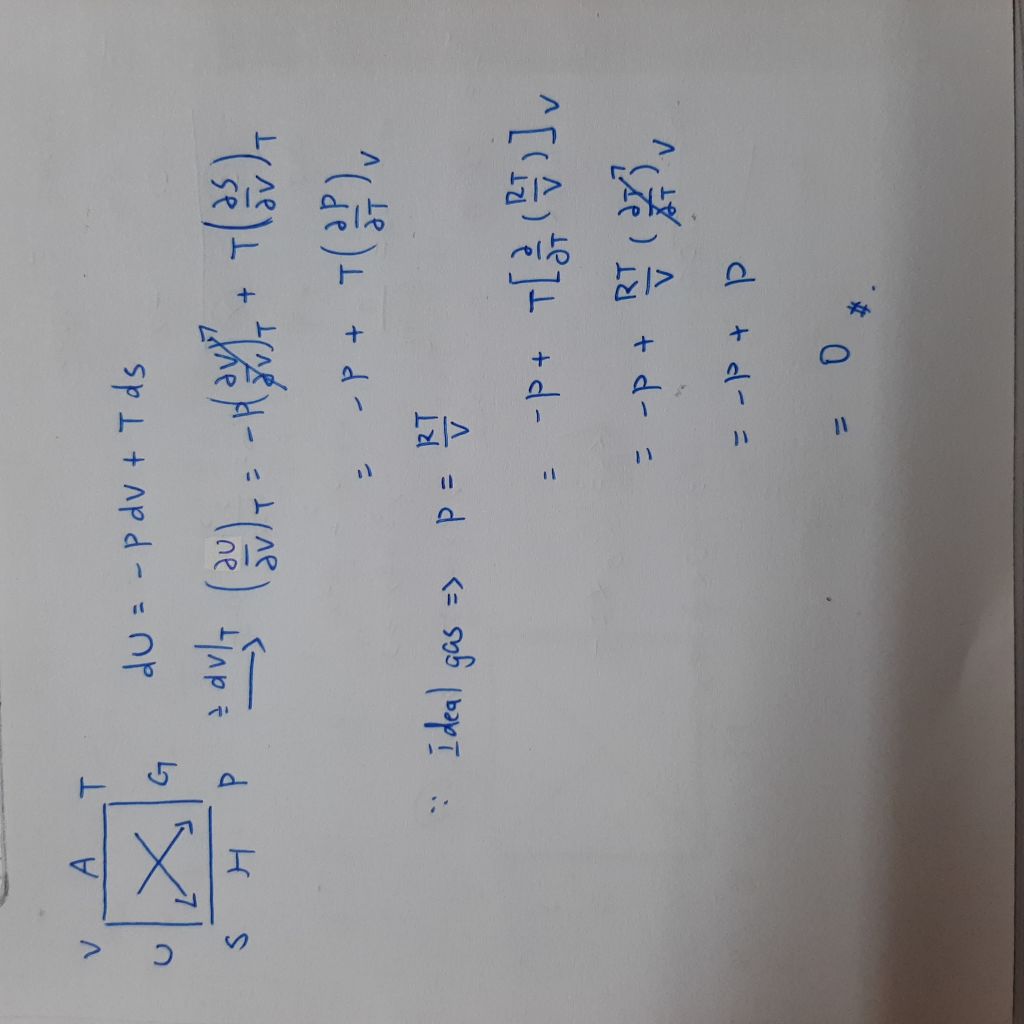 V A T
U G
S H P
dU = - P dV + T dS
÷ dV|_T ⟶ (∂U/∂V)_T = -P(∂V/∂V)_T + T(∂S/∂V)_T
= -P + T(∂P/∂T)_V
∵ ideal gas => P = RT/V
= -P + T[∂/∂T (RT/V)]_V
= -P + RT/V (∂T/∂T)_V
= -P + P
= 0 #.